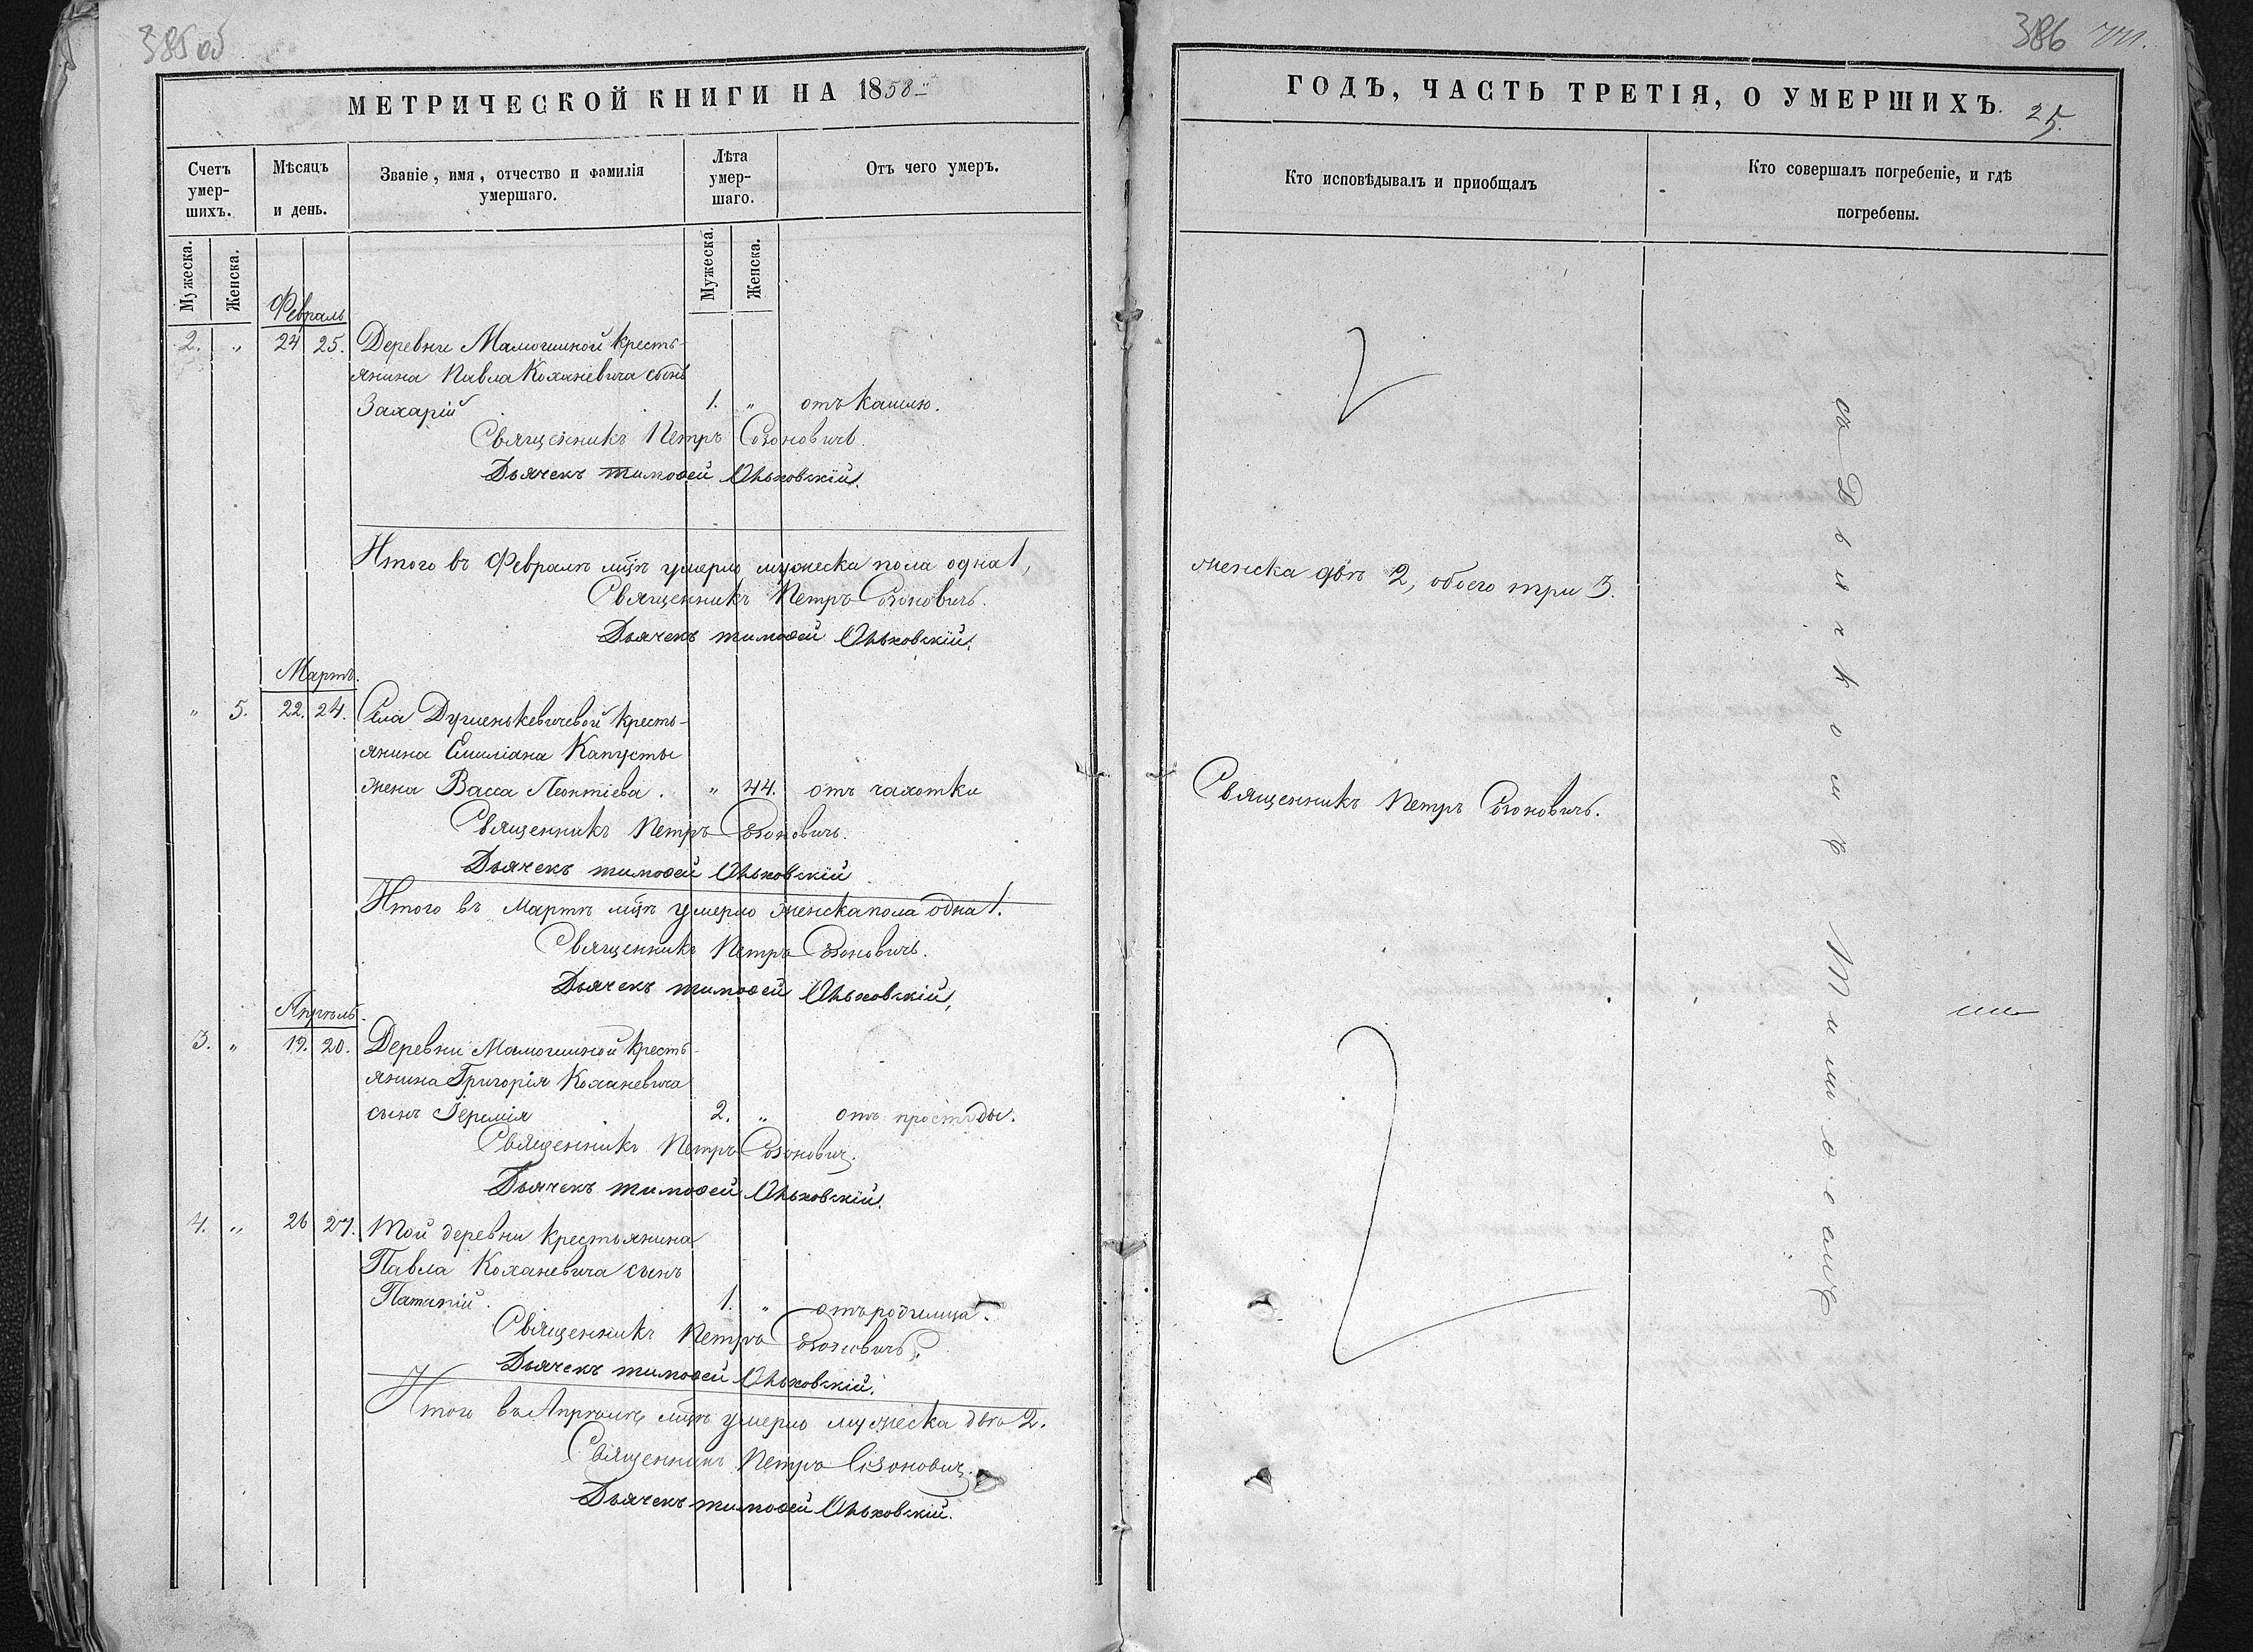 385 об
МЕТРИЧЕСКОЙ КНИГИ НА 1858
Счетъ умер- шихъ.
Мѣсяцъ и день.
Званіе, имя, отчество и фамилія умершаго.
Лѣта умер- шаго.
Отъ чего умеръ.
Мужеска.
Женска.
Мужеска.
Женска.
Февраль
2. „ 24 25. Деревни Мамошиной кресть-
янина Павла Коханевича сынъ
Захарій 1. „ отъ кашлю.
Священникъ Петръ Созоновичъ.
Дьячекъ Тимоѳей Оньковскій.
Итого въ Февралѣ мцѣ умерло мужеска пола одна 1,
Священникъ Петръ Созоновичъ.
Дьячекъ Тимоѳей Оньковскій.
Мартъ.
„ 5. 22. 24. Села кресть-
янина Емиліана Капусты
жена Васса Леонтіева. „ 44. отъ чахотки
Священникъ Петръ Созоновичъ.
Дьячекъ Тимоѳей Оньковскій
Итого въ Мартѣ мцѣ умерло женска пола одна 1.
Священникъ Петръ Созоновичъ.
Дьячекъ Тимоѳей Оньковскій.
Апрѣль.
3. „ 19. 20. Деревни Мамошиной кресть-
янина Григорія Коханевича
сынъ Іеремія 2. „ отъ простуды.
Священникъ Петръ Созоновичъ.
Дьячекъ Тимоѳей Оньковскій.
4. „ 26 27. Той деревни крестьянина
Павла Коханевича сынъ
Патапій. 1. „ отъ родимца.
Священникъ Петръ Созоновичъ.
Дьячекъ Тимоѳей Оньковскій.
Итого въ Апрѣлѣ мцѣ умерло мужеска два 2.
Священникъ Петръ Созоновичъ.
Дьячекъ Тимоѳей Оньковскій.
386
ГОДЪ, ЧАСТЬ ТРЕТІЯ, О УМЕРШИХЪ.
25.
Кто исповѣдывалъ и пріобщалъ
Кто совершалъ погребеніе, и гдѣ
погребены.
женска двѣ 2, обоего три 3.
Священникъ Петръ Созоновичъ.
съ Дьячкомъ Тимоѳеемъ